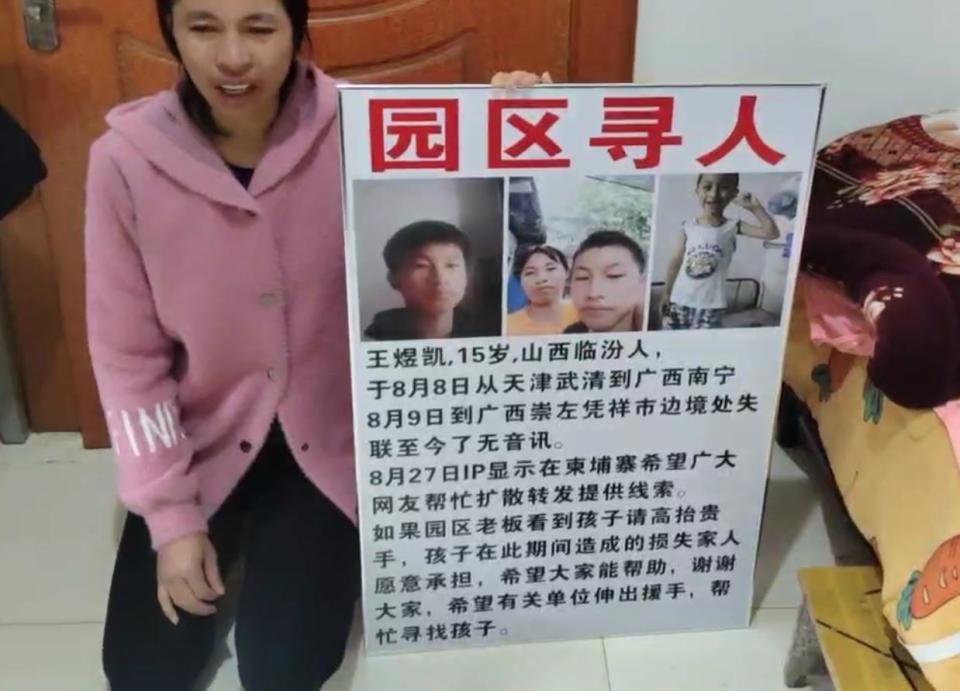 园区寻人
王煜凯,15岁,山西临汾人,
于8月8日从天津武清到广西南宁
8月9日到广西崇左凭祥市边境处失
联至今了无音讯。
8月27日IP显示在柬埔寨希望广大
网友帮忙扩散转发提供线索。
如果园区老板看到孩子请高抬贵
手，孩子在此期间造成的损失家人
愿意承担，希望大家能帮助，谢谢
大家，希望有关单位伸出援手，帮
忙寻找孩子。